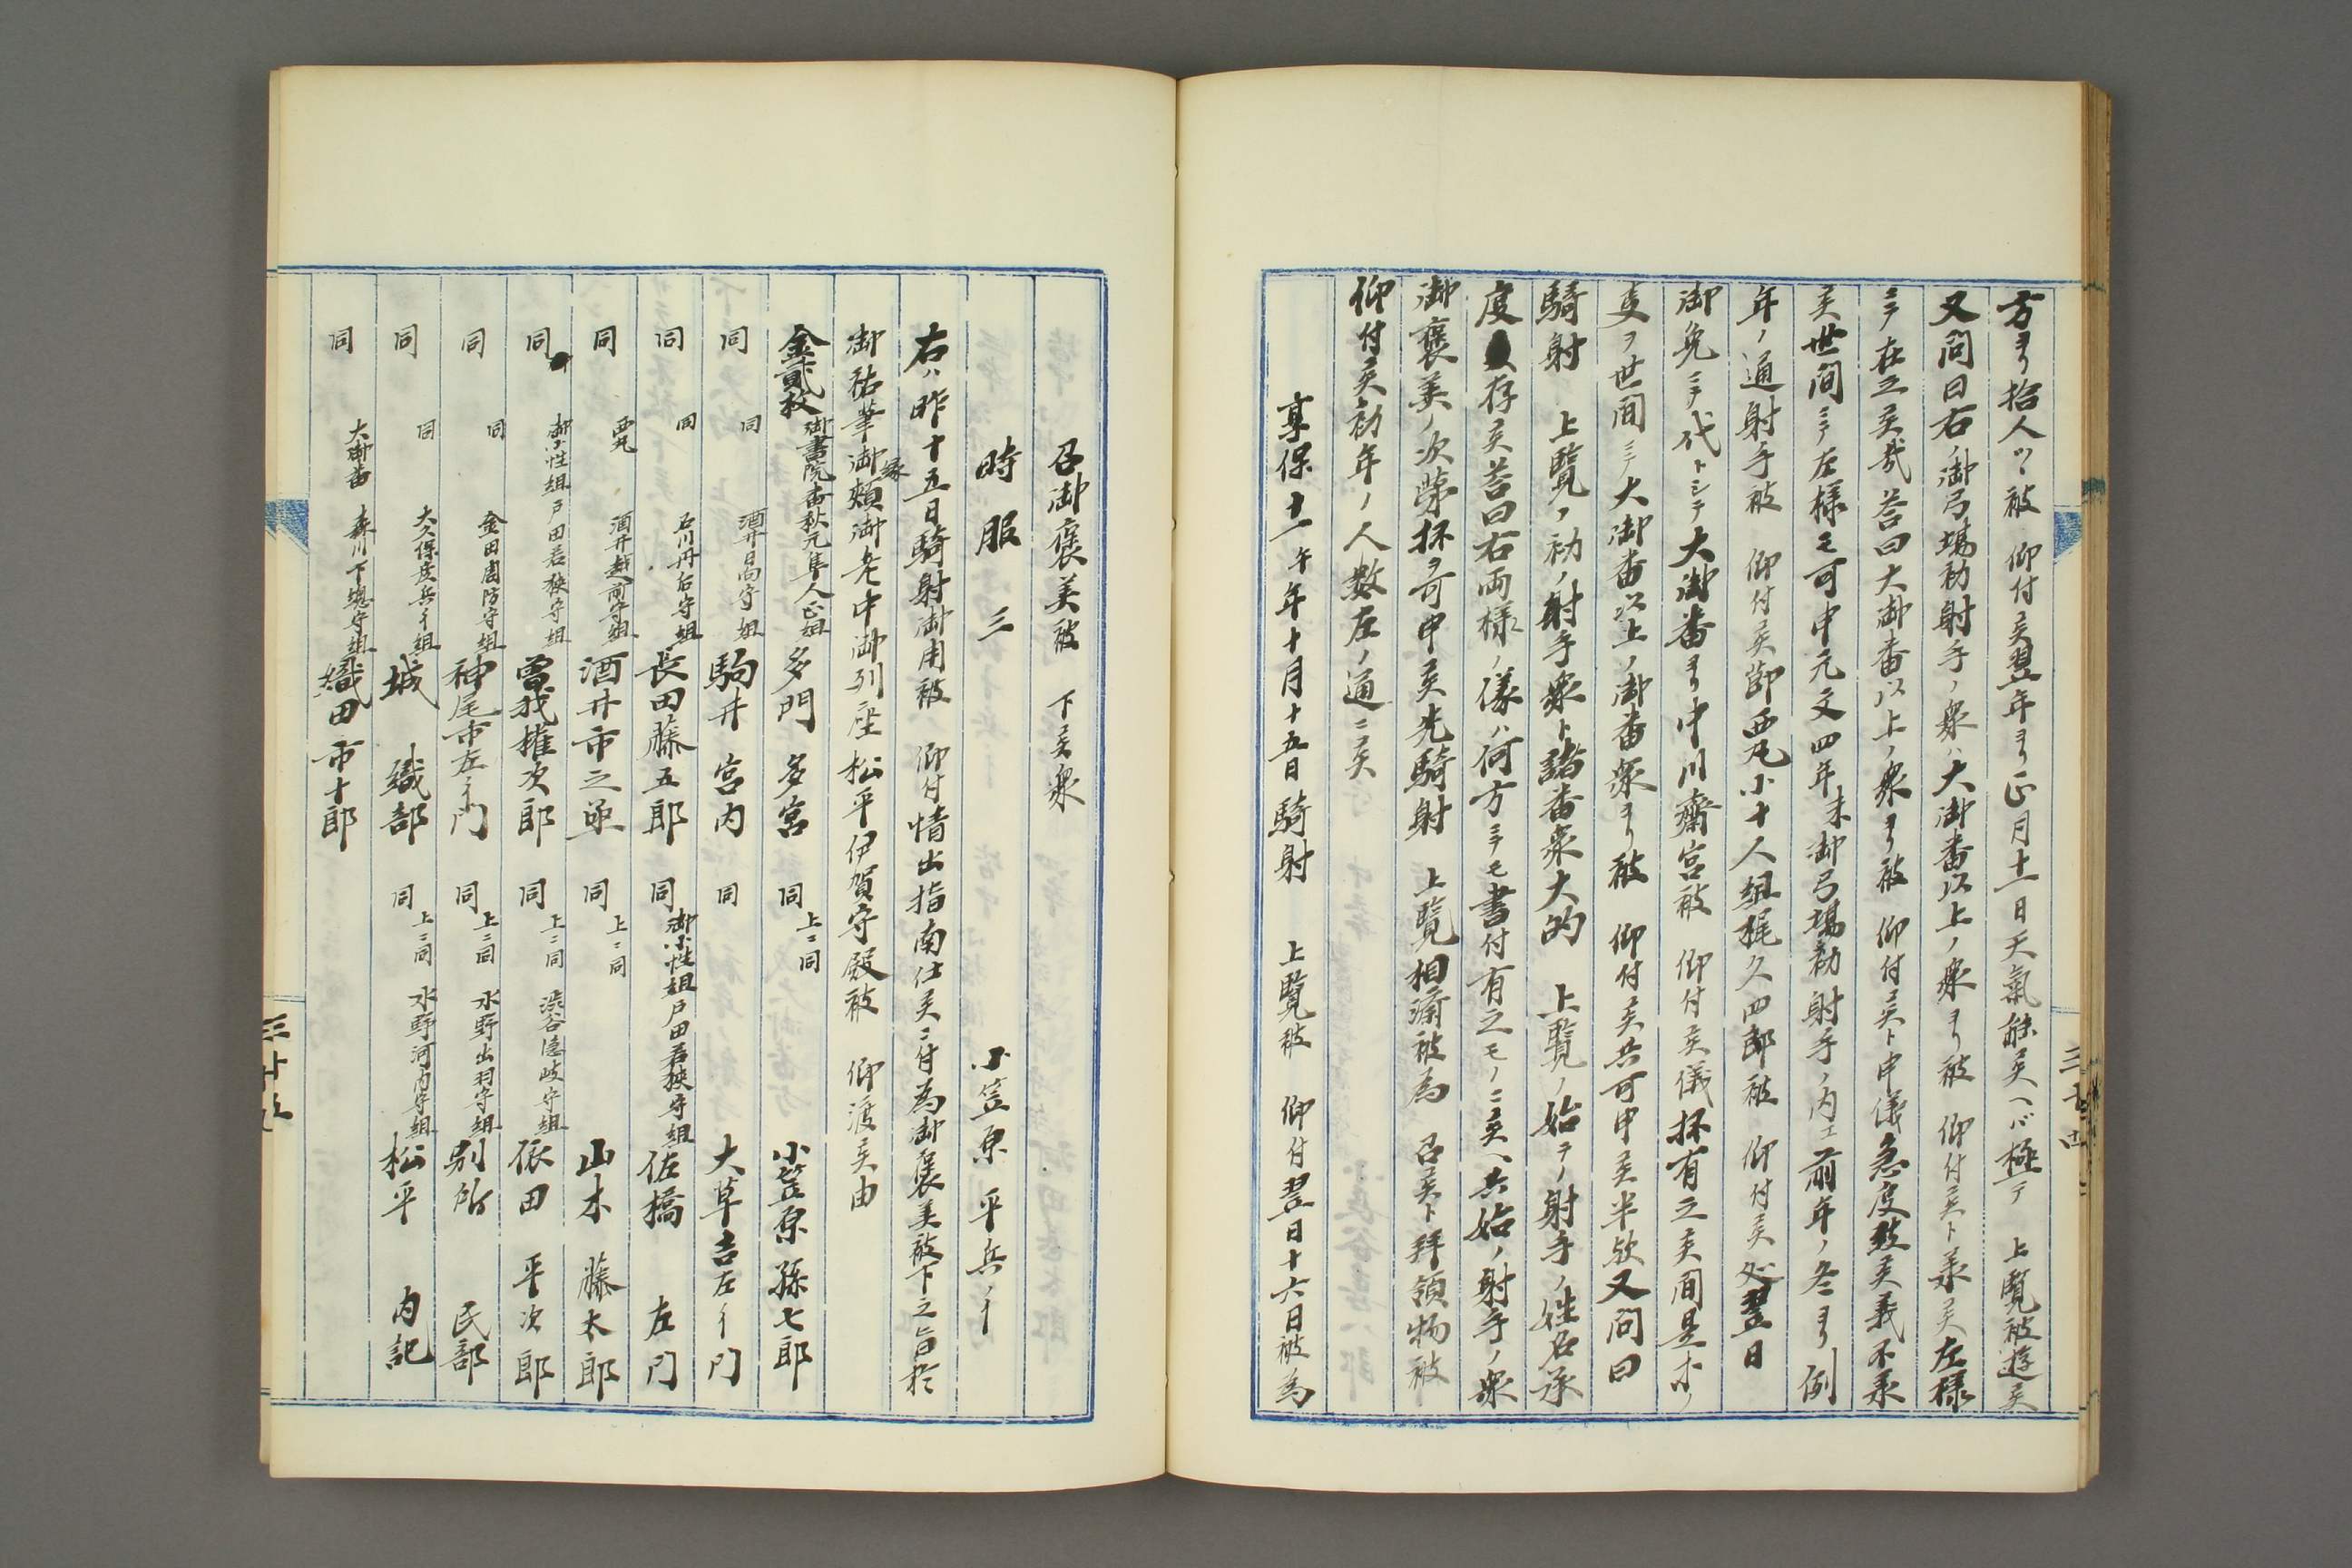 方ヨリ拾人ツヽ被　仰付候翌年ヨリ正月十一日天氣能候ヘバ極テ　上覧被遊候
又問曰右ノ御弓場初射手ノ衆ハ大御番以上ノ衆ヨリ被　仰付候ト承候左様
ニテ在之候哉答曰大御番以上ノ衆ヨリ被　仰付候ト申儀急度致候義不承
候世間ニテ左様モ可申元文四年末御弓場初射手ノ内エ前年ノ冬ヨリ例
年ノ通射手被　仰付候節西丸小十人組梶久四郎被　仰付候処翌日
御免ニテ代トシテ大御番ヨリ中川齋宮被　仰付候儀抔有之候間是等ノ
支ヲ世間ニテ大御番以上ノ御番衆ヨリ被　仰付候共可申候半欤又問曰
騎射　上覧ノ初ノ射手衆ト諸番衆大的　上覧ノ始テノ射手ノ姓名承
度存候答曰右両様ノ儀ハ何方ニテモ書付有之モノニ候ヘ共始ノ射手ノ衆
御褒美ノ次第抔ヲ可申候先騎射　上覧相濟被為　召候ト拝領物被
仰付候初年ノ人数左ノ通ニ候
享保十一午年十月十五日騎射　上覧被　仰付翌日十六日被為
三十四
召御褒美被　下候衆
時服　三　小笠原　平兵衛
右ハ昨十五日騎射御用被　仰付情出指南仕候ニ付為御褒美被下之旨於
御祐筆御頬御老中御列座松平伊賀守殿被　仰渡候由
縁
金貳枚　御書院番秋元隼人正組　多門　多宮　同　上ニ同　小笠原　孫七郎
同　同　酒井日向守組　駒井　宮内　同　大草吉左衛門
同　同　石川丹后守組　長田藤五郎　同　御小性組戸田若狭守組　佐橋　左門
同　西丸　酒井越前守組　酒井市之亟　同　上ニ同　山本　藤太郎
同　御小性組戸田若狭守組　曽我権次郎　同　上ニ同　渋谷隠岐守組　依田　平次郎
同　同　金田周防守組　神尾市左衛門　同　上ニ同　水野出羽守組　別所　民部
同　同　大久保彦兵衛組　城　織部　同　上ニ同　水野河内守組　松平　内記
同　大御番　森川下總守組　織田市十郎
三十五